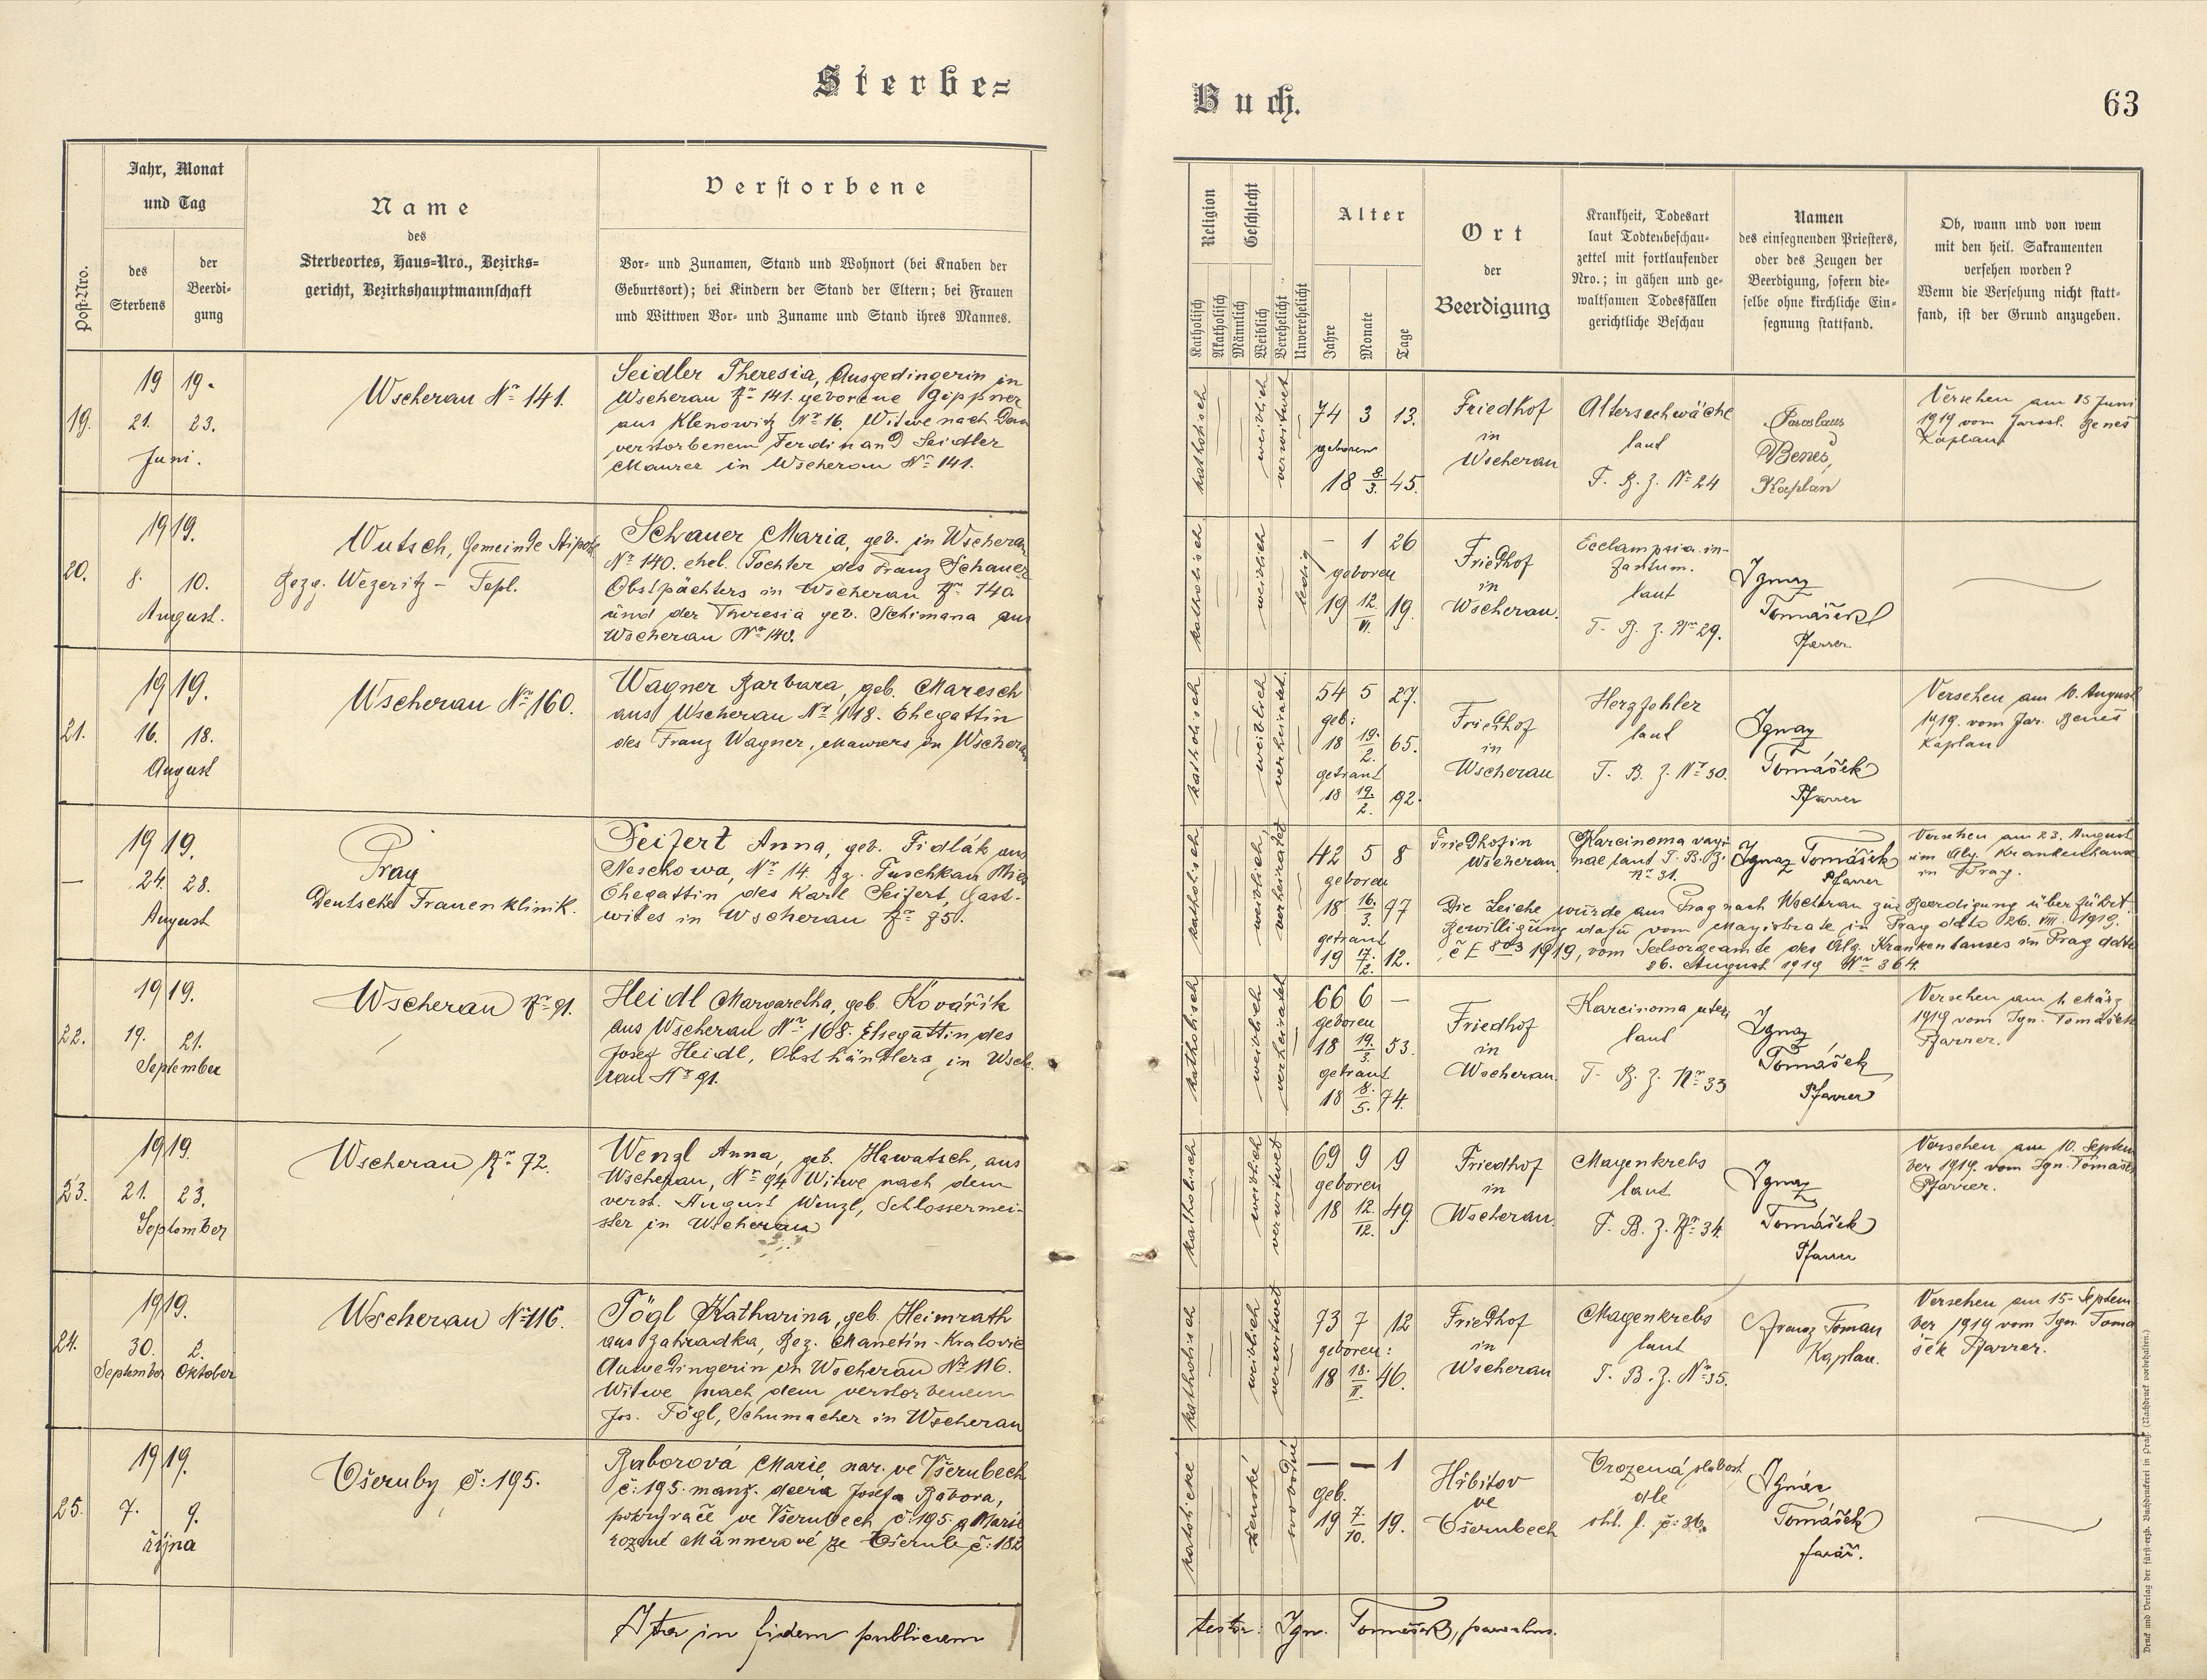 Sterbe=
Buch.
63
Post-Nro.
Jahr, Monat
und Tag
des
Sterbens
der
Beerdi-
gung
Name
des
Sterbeortes, Haus=Nro., Bezirks=
gericht, Bezirkshauptmannschaft
Verstorbene
Vor- und Zunamen, Stand und Wohnort (bei Knaben der
Geburtsort); bei Kindern der Stand der Eltern; bei Frauen
und Wittwen Vor- und Zuname und Stand ihres Mannes.
Religion
Katholisch
Akatholisch
Geschlecht
Männlich
Weiblich
Verehelicht
Unverehelicht
Alter
Jahre
Monate
Tage
Ort
der
Beerdigung
Krankheit, Todesart
laut Todtenbeschau-
zettel mit fortlaufender
Nro.; in gähen und ge-
waltsamen Todesfällen
gerichtliche Beschau
Namen
des einsegnenden Priesters,
oder des Zeugen der
Beerdigung, sofern die-
selbe ohne kirchliche Ein-
segnung stattfand.
Ob, wann und von wem
mit den heil. Sakramenten
versehen worden?
Wenn die Versehung nicht statt-
fand, ist der Grund anzugeben.
19.
19 19.
21. 23.
Juni.
Wscherau Nr 141.
Seidler Theresia, Ausgedingerin in
Wscherau Nr 141. geborene
aus Klenowitz Nr 16. Witwe nach dem
verstorbenem Ferdinand Seidler
Maurer in Wscherau Nr 141.
katholisch
weiblich
verwitwet
74 3 13.
geboren
18 8./3. 45.
Friedhof
in
Wscherau
Altersschwäche
laut
T. B. Z. Nr 24
Jaroslaus
Beneš,
Kaplan
Versehen am 15 Juni
1919 vom Jarosl. Beneš
Kaplan
20.
1919.
8. 10.
August.
Wutsch, Gemeinde
Bezg. Wezeritz - Tepl.
Schauer Maria, geb. in Wscherau
Nr 140. ehel. Tochter des Franz Schauer
Obstpächters in Wscherau Nr 140
und der Theresia geb. Schimana aus
Wscherau Nr 140.
katholisch
weiblich
ledig
– 1 26
geboren
19 12./VI. 19.
Friedhof
in
Wscherau.
Ecclampsia in-
fantum.
laut
T. B. Z. Nr 29.
Ignaz
Tomášek
Pfarrer
21.
1919.
16. 18.
August
Wscherau Nr 160.
Wagner Barbara, geb. Maresch
aus Wscherau Nr 118. Ehegattin
des Franz Wagner, Maurers in Wscherau
katholisch
weiblich
verheiratet
54 5 27.
geb:
18 19./2. 65.
getraut
18 19./2. 92.
Friedhof
in
Wscherau
Herzfehler
laut
T. B. Z. Nr 30.
Ignaz
Tomášek
Pfarrer
Versehen am 16. August
1919. vom Jar. Beneš
Kaplan
—
1919.
24. 28.
August
Prag
Deutsche Frauenklinik.
Seifert Anna, geb. Fidlák aus
Neschowa, Nr 14. Bz. Tuschkau Mies
Ehegattin des Karl Seifert, Gast-
wirtes in Wscherau Nr 85.
katholisch
weiblich,
verheiratet
42 5 8
geboren
18 16./3. 77
getraut
19 7./2. 12.
Friedhof in
Wscherau
Karcinoma vagi-
nae laut T. B. Z.
Nr 31.
Ignaz Tomášek
Pfarrer
Versehen am 23. August
im Alg. Krankenhause
in Prag.
Die Leiche wurde aus Prag nach Wscherau zur Beerdigung überführt.
Bewilligung dafür vom Magistrate in Prag ddto 26. VIII. 1919.
1919, vom Seelsorgeamte des Alg. Krankenhauses in Prag ddto
26. August 1919 Nr 364.
22.
1919.
19. 21.
September
Wscherau Nr 91.
Heidl Margaretha, geb. Kovářik
aus Wscherau Nr 168. Ehegattin des
Josef Heidl, Obsthändlers in Wsche-
rau Nr 91.
katholisch
weiblich
verheiratet
66 6 —
geboren
18 19./3. 53.
getraut
18 8./5. 74.
Friedhof
in
Wscherau.
Karcinoma uteri
laut
T. B. Z. Nr 33
Ignaz
Tomášek
Pfarrer
Versehen am 1. März
1919 vom Ign. Tomášek
Pfarrer.
23.
1919.
21. 23.
September
Wscherau Nr 72.
Wenzl Anna, geb. Hawatsch, aus
Wscherau, Nr 94 Witwe nach dem
verst. August Wenzl, Schlossermei-
ster in Wscherau
katholisch
weiblich
verwitwet
69 9 9
geboren
18 12./12. 49.
Friedhof
in
Wscherau.
Magenkrebs
laut
T. B. Z. Nr 34.
Ignaz
Tomášek
Pfarrer
Versehen am 10. Septem
ber 1919. vom Ign. Tomášek
Pfarrer.
24.
1919.
30. 2.
September Oktober
Wscherau Nr 116.
Tögl Katharina, geb. Heimrath
aus Zahradka, Bez. Manetin-Kralovic
in Wscherau Nr 116.
Witwe nach dem verstorbenem
Jos. Tögl, Schumacher in Wscherau
katholisch
weiblich
verwitwet
73 7 12
geboren:
18 18./II. 46.
Friedhof
in
Wscherau
Magenkrebs
laut
T. B. Z. Nr 35.
Franz Toman
Kaplan.
Versehen am 15. Septem
ber 1919 vom Ign. Tomá
šek Pfarrer.
25.
1919.
7. 9.
října
Všeruby č: 195.
Baborová Marie, nar. ve Všerubech
č: 195. manž. dcera Josefa Babora,
pokrývače ve Všerubech č: 195 a Marie
rozené Männerové ze Všerub č: 182
katolické
ženské
svobodné
— — 1
geb.
19 7./10. 19.
Hřbitov
ve
Všerubech
Vrozená slabost
dle
ohl. l. č: 36.
Ignác
Tomášek
farář.
Ita in fidem publicam
testor: Ign. Tomášek, parochus.
Druck und Verlag der fürst-erzb. Buchdruckerei in Prag. (Nachdruck vorbehalten.)